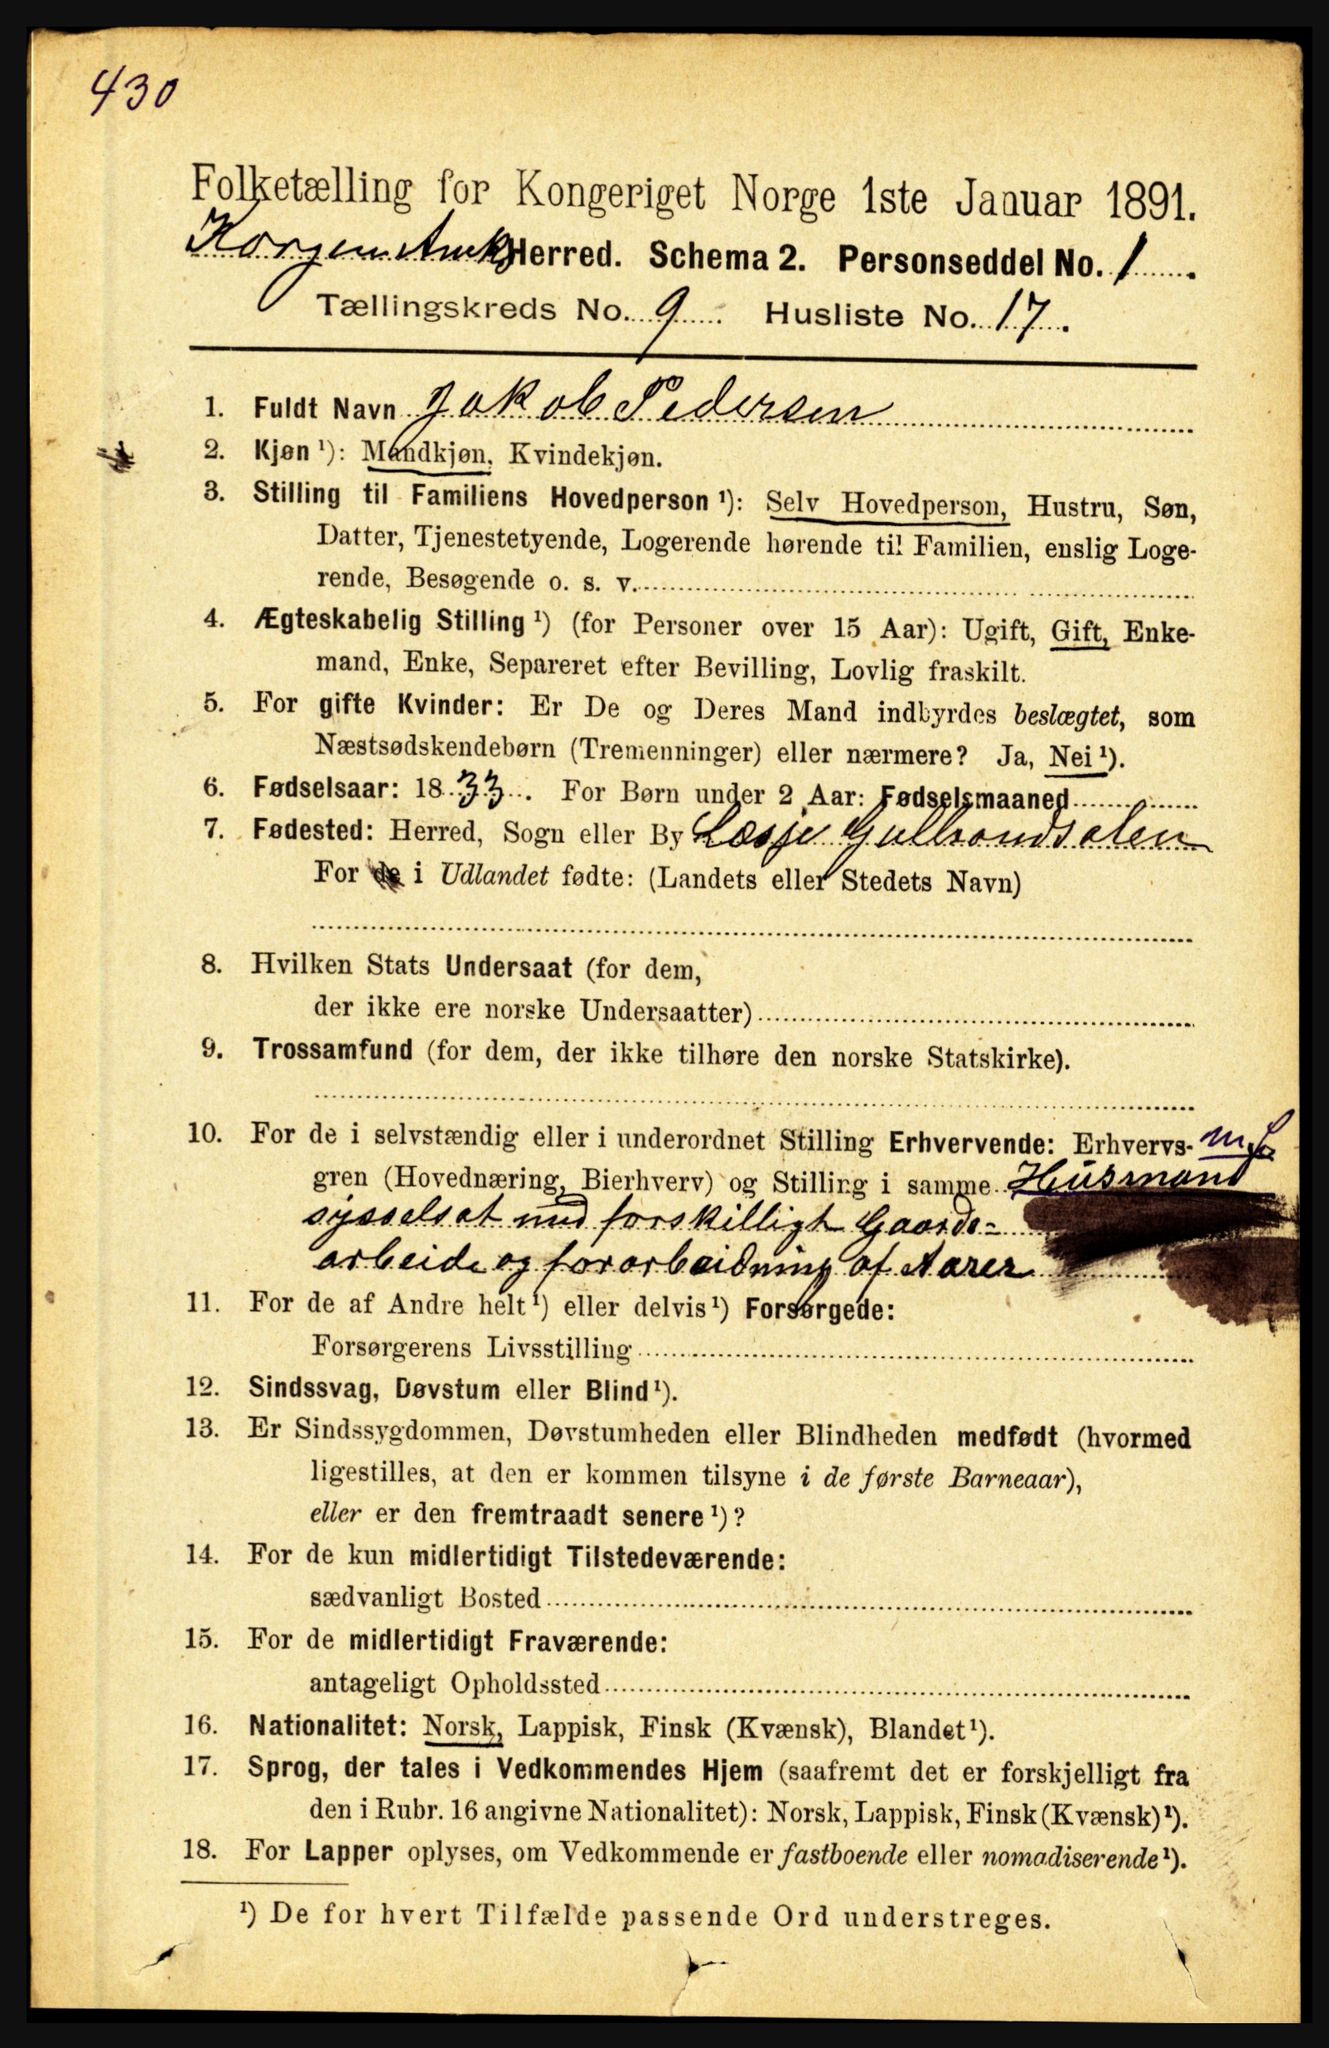 430
Folketælling for Kongeriget Norge 1ste Januar 1891.
Korgen Herred. Schema 2. Personseddel No. 1.
Tællingskreds No. 9. Husliste No. 17.
1. Fuldt Navn Jakob Pedersen
2. Kjøn ¹): Mandkjøn, Kvindekjøn.
3. Stilling til Familiens Hovedperson ¹): Selv Hovedperson, Hustru, Søn,
Datter, Tjenestetyende, Logerende hørende til Familien, enslig Loge-
rende, Besøgende o. s. v.
4. Ægteskabelig Stilling ¹) (for Personer over 15 Aar): Ugift, Gift, Enke-
mand, Enke, Separeret efter Bevilling, Lovlig fraskilt.
5. For gifte Kvinder: Er De og Deres Mand indbyrdes beslægtet, som
Næstsødskendebørn (Tremenninger) eller nærmere? Ja, Nei ¹).
6. Fødselsaar: 1833. For Børn under 2 Aar: Fødselsmaaned
7. Fødested: Herred, Sogn eller By Læsje Gulbrandsalen
For de i Udlandet fødte: (Landets eller Stedets Navn)
8. Hvilken Stats Undersaat (for dem,
der ikke ere norske Undersaatter)
9. Trossamfund (for dem, der ikke tilhøre den norske Statskirke).
10. For de i selvstændig eller i underordnet Stilling Erhvervende: Erhvervs- m.f.
gren (Hovednæring, Bierhverv) og Stilling i samme Husmand
sysselsat med forskilligt Gaards-
arbeide og forarbeidning af Aarer
11. For de af Andre helt ¹) eller delvis ¹) Forsørgede:
Forsørgerens Livsstilling
12. Sindssvag, Døvstum eller Blind ¹).
13. Er Sindssygdommen, Døvstumheden eller Blindheden medfødt (hvormed
ligestilles, at den er kommen tilsyne i de første Barneaar),
eller er den fremtraadt senere ¹)?
14. For de kun midlertidigt Tilstedeværende:
sædvanligt Bosted
15. For de midlertidigt Fraværende:
antageligt Opholdssted
16. Nationalitet: Norsk, Lappisk, Finsk (Kvænsk), Blandet ¹).
17. Sprog, der tales i Vedkommendes Hjem (saafremt det er forskjelligt fra
den i Rubr. 16 angivne Nationalitet): Norsk, Lappisk, Finsk (Kvænsk) ¹).
18. For Lapper oplyses, om Vedkommende er fastboende eller nomadiserende ¹).
¹) De for hvert Tilfælde passende Ord understreges.